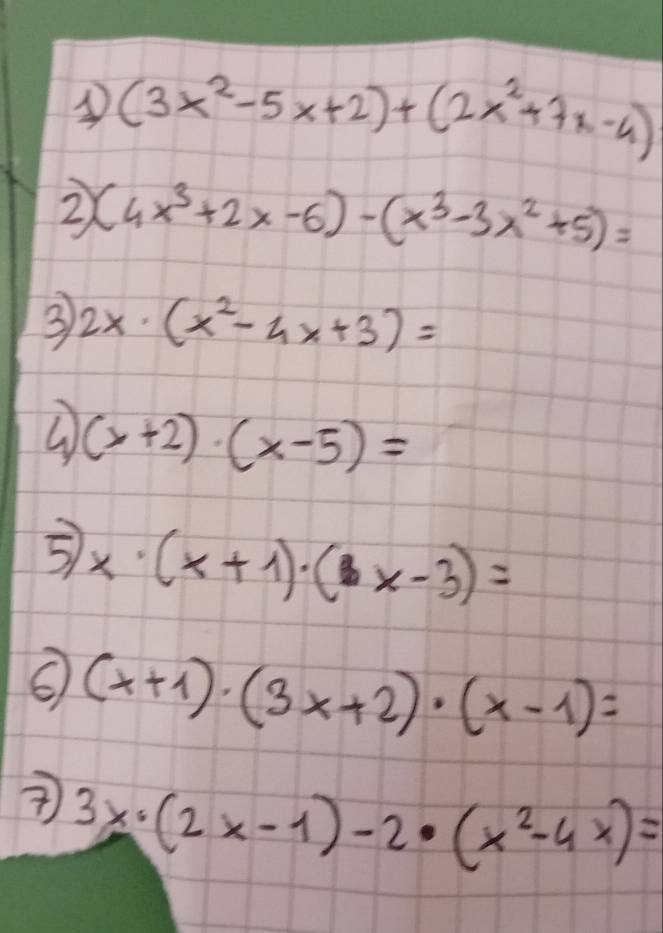 1) (3x²-5x+2)+(2x²+7x-4)
2) (4x³+2x-6)-(x³-3x²+5)=
3) 2x·(x²-4x+3)=
4) (x+2)·(x-5)=
5) x·(x+1)·(x-3)=
6) (x+1)·(3x+2)·(x-1)=
7) 3x·(2x-1)-2·(x²-4x)=